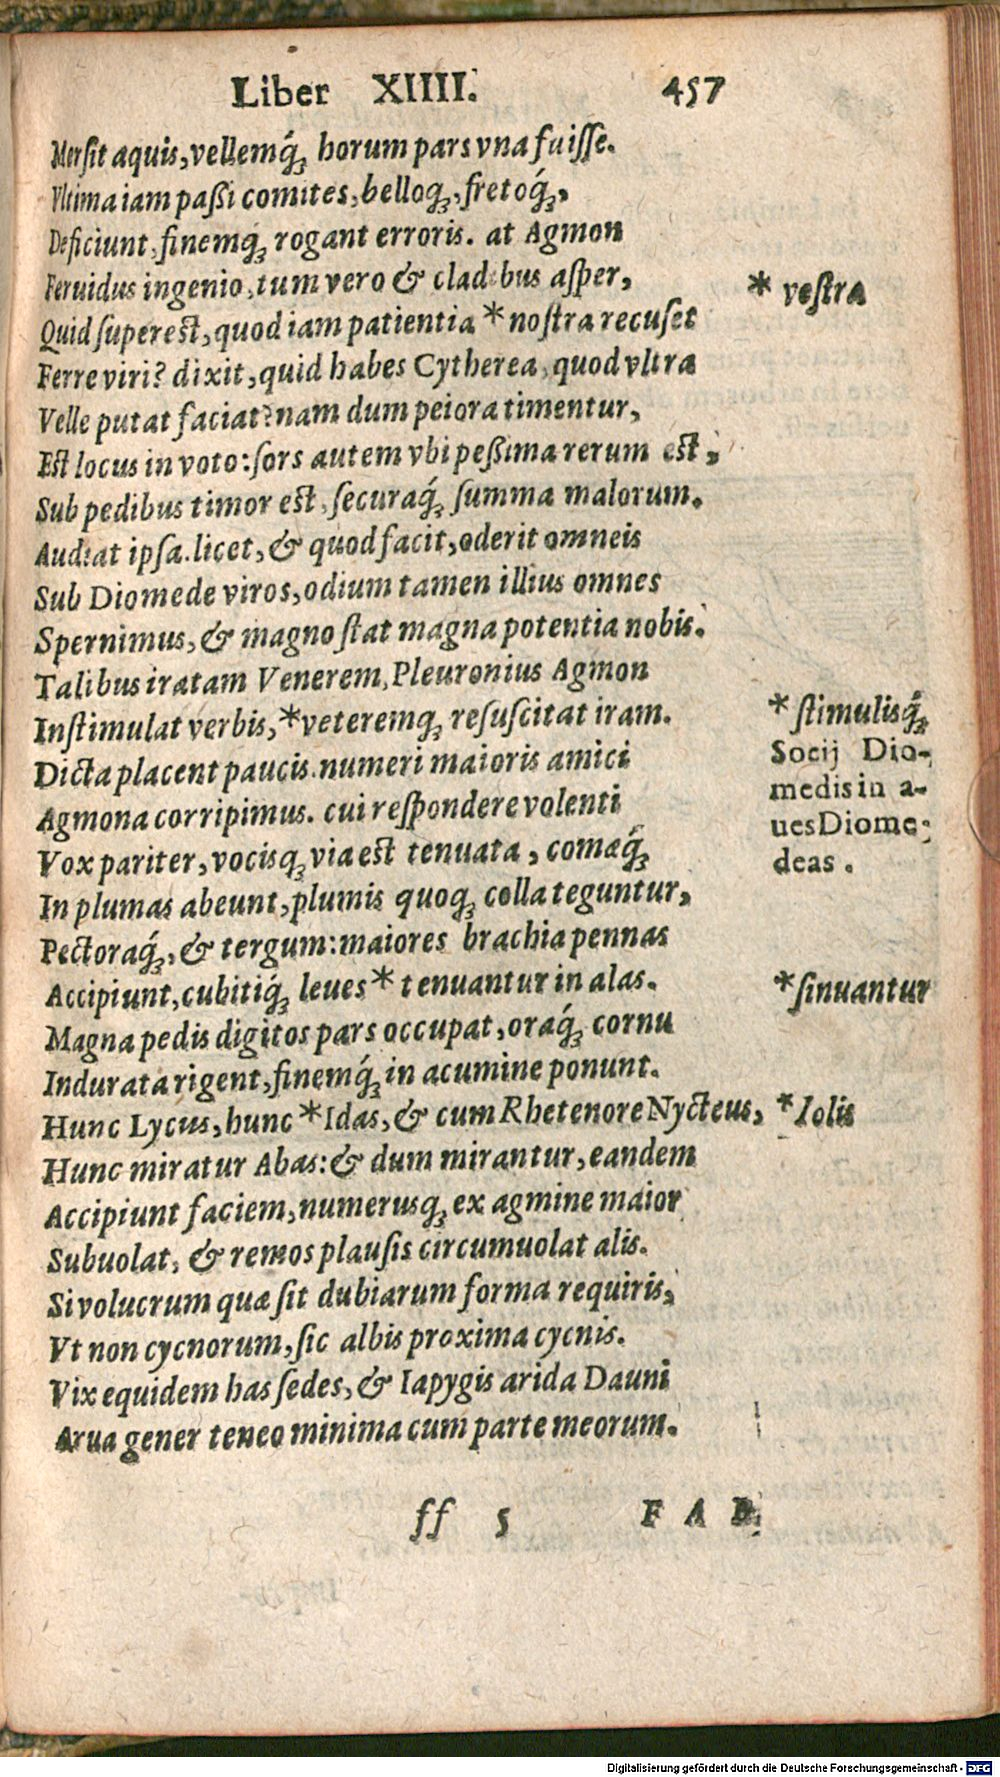 Liber XIIII. 457
Mersit aquis, vellemq́ꝫ horum pars vna fuisse.
Vltima iam paßi comites, belloqꝫ, fretoq́ꝫ,
Deficiunt, finemq́ꝫ rogant erroris. at Agmon
Feruidus ingenio, tum vero & cladibus asper,
* vestra
Quid superest, quod iam patientia * nostra recuset
Ferre viri? dixit, quid habes Cytherea, quod vltra
Velle putat faciat? nam dum peiora timentur,
Est locus in voto: sors autem vbi peßima rerum est,
Sub pedibus timor est, securaq́ꝫ summa malorum.
Audiat ipsa. licet, & quod facit, oderit omneis
Sub Diomede viros, odium tamen illius omnes
Spernimus, & magno stat magna potentia nobis.
Talibus iratam Venerem, Pleuronius Agmon
Instimulat verbis, * veteremqꝫ resuscitat iram.
* stimulisq́ꝫ
Dicta placent paucis. numeri maioris amici
Agmona corripimus. cui respondere volenti
Vox pariter, vocisqꝫ via est tenuata, comæq́ꝫ
In plumas abeunt, plumis quoqꝫ colla teguntur,
Socij Dio-
medis in a-
ues Diome-
deas.
Pectoraq́ꝫ, & tergum: maiores brachia pennas
Accipiunt, cubitiq́ꝫ leues * tenuantur in alas.
* sinuantur
Magna pedis digitos pars occupat, oraq́ꝫ cornu
Indurata rigent, finemq́ꝫ in acumine ponunt.
Hunc Lycus, hunc * Idas, & cum Rhetenore Nycteus,
* Iolis
Hunc miratur Abas: & dum mirantur, eandem
Accipiunt faciem, numerusqꝫ ex agmine maior
Subuolat, & remos plausis circumuolat alis.
Si volucrum quæ sit dubiarum forma requiris,
Vt non cycnorum, sic albis proxima cycnis.
Vix equidem has sedes, & Iapygis arida Dauni
Arua gener teneo minima cum parte meorum.
ff 5 FAB.
Digitalisierung gefördert durch die Deutsche Forschungsgemeinschaft - DFG